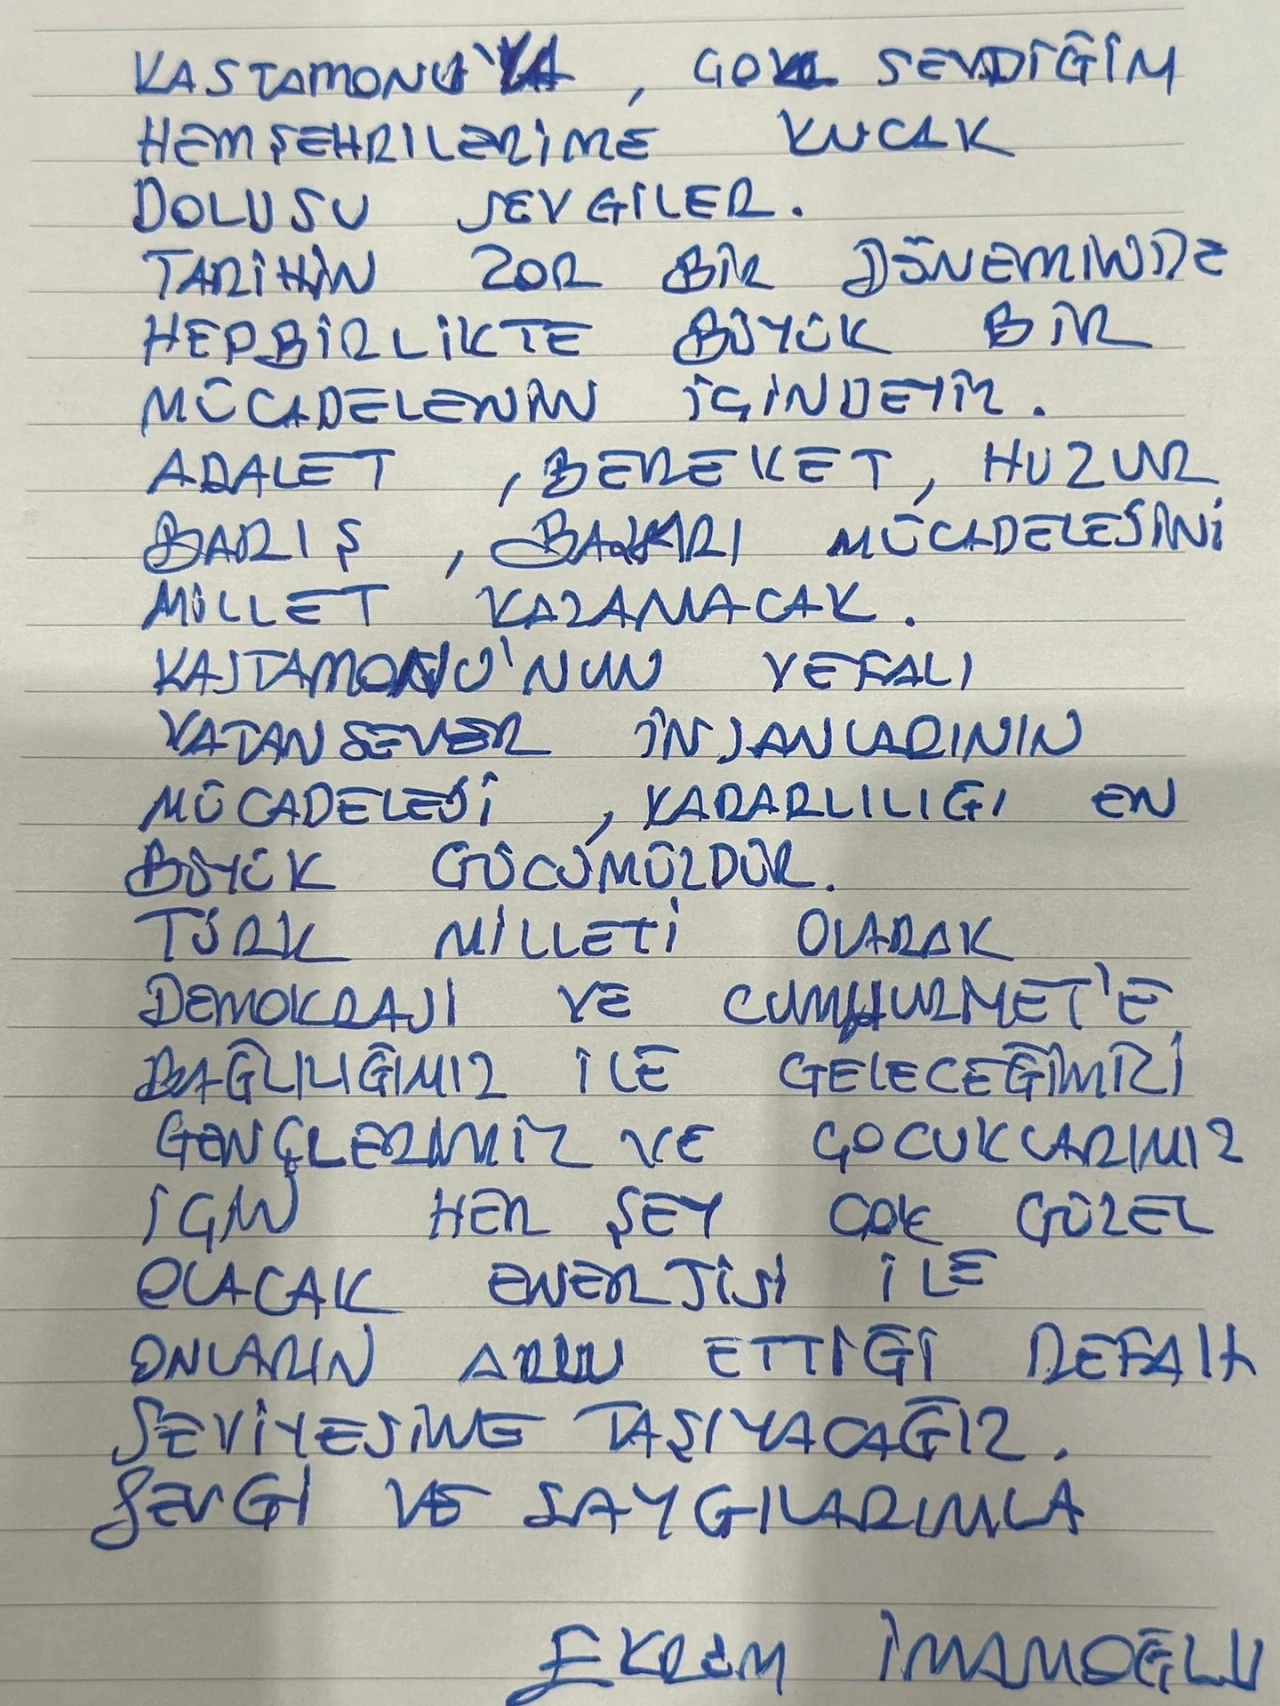 KASTAMONU'YA, ÇOK SEVDİĞİM
HEMŞEHRILERİME KUCAK
DOLUSU SEVGİLER.
TARİHİN ZOR BİR DÖNEMINDE
HEPBİRLİKTE BÜYÜK BİR
MÜCADELENİN İÇİNDEYİZ.
ADALET, BEREKET, HUZUR
BARIŞ, BAŞARI MÜCADELESİNİ
MİLLET KAZANACAK.
KASTAMONU'NUN VEFALI
VATANSEVER İNSANLARININ
MÜCADELESİ, KARARLILIĞI EN
BÜYÜK GÜCÜMÜZDÜR.
TÜRK MİLLETİ OLARAK
DEMOKRASİ VE CUMHURİYET'E
BAĞLILIĞIMIZ İLE GELECEĞİMİZİ
GENÇLERİMİZ VE ÇOCUKLARIMIZ
İÇİN HER ŞEY ÇOK GÜZEL
OLACAK ENERJİSİ İLE
ONLARIN ARZU ETTİĞİ REFAH
SEVİYESİNE TAŞIYACAĞIZ.
SEVGİ VE SAYGILARIMLA
EKREM İMAMOĞLU